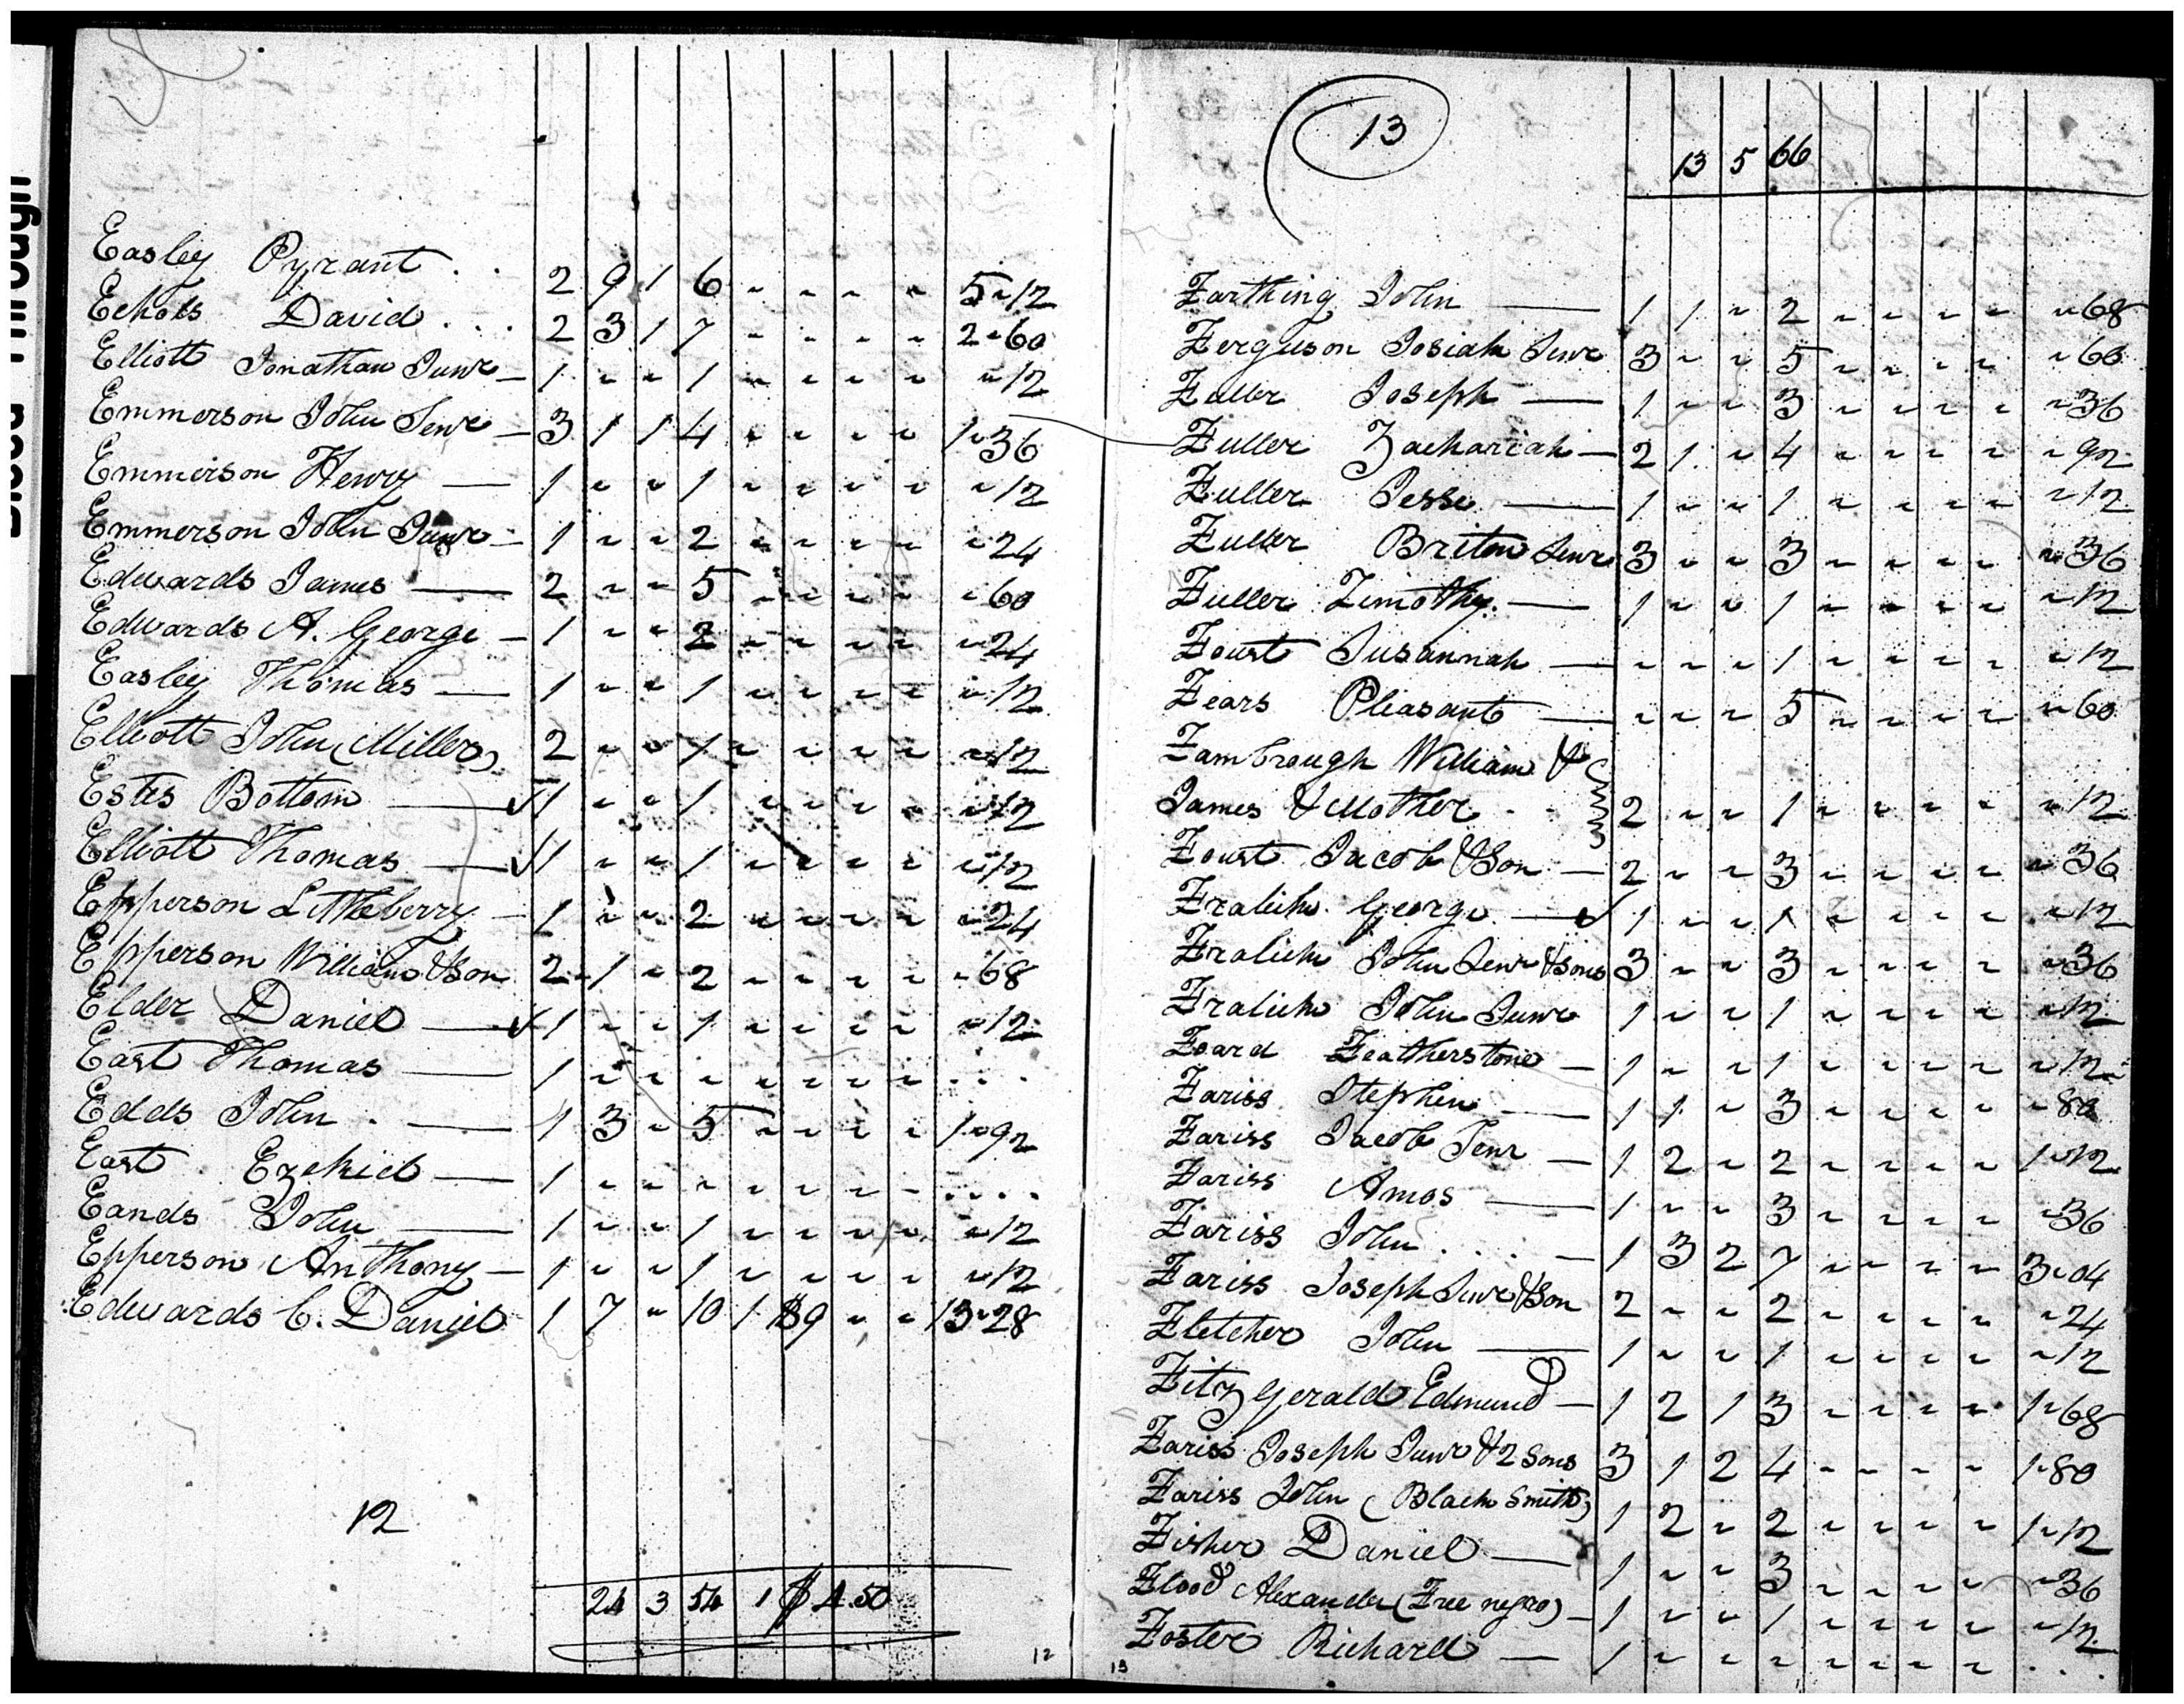 Easley Pyrant . . 2 9 1 6 " " " " 5"12
Echols David . . . 2 3 1 7 " " " " 2"60
Elliott Jonathan Junr — 1 " " 1 " " " " "12
Emmerson John Senr — 3 1 1 4 " " " " 1"36
Emmerson Henry — 1 " " 1 " " " " "12
Emmerson John Junr — 1 " " 2 " " " " "24
Edwards James — 2 " " 5 " " " " "60
Edwards A. George — 1 " " 2 " " " " "24
Easley Thomas — 1 " " 1 " " " " "12
Elliott John (Miller) 2 " " 1 " " " " "12
Estes Bottom — ✓ 1 " " 1 " " " " "12
Elliott Thomas — ✓ 1 " " 1 " " " " "12
Epperson Littleberry — 1 " " 2 " " " " "24
Epperson William & Son 2 1 " 2 " " " " "68
Elder Daniel — ✓ 1 " " 1 " " " " "12
East Thomas — 1 " " " " " " " . . .
Edds John . — 1 3 " 5 " " " " 1"92
East Ezekiel — 1 " " " " " " " . . . .
Eands John — 1 " " 1 " " " " "12
Epperson Anthony — 1 " " 1 " " " " "12
Edwards C. Daniel 1 7 " 10 1 $9 " " 13"28
12
24 3 54 1 $ 4.50
12
13
13 5 66
Farthing John — 1 1 " 2 " " " " "68
Ferguson Josiah Senr 3 " " 5 " " " " "60
Fuller Joseph — 1 " " 3 " " " " "36
Fuller Zachariah — 2 1 " 4 " " " " "92
Fuller Jesse — 1 " " 1 " " " " "12
Fuller Briton Senr 3 " " 3 " " " " "36
Fuller Timothy. — 1 " " 1 " " " " "12
Foust Susannah — " " " 1 " " " " "12
Fears Pleasant — " " " 5 " " " " "60
Fambrough William &
James & Mother . . 2 " " 1 " " " " "12
Foust Jacob & Son — 2 " " 3 " " " " "36
Fralick George — ✓ 1 " " 1 " " " " "12
Fralick John Senr & sons 3 " " 3 " " " " "36
Fralick John Junr 1 " " 1 " " " " "12
Foard Featherstone — 1 " " 1 " " " " "12
Fariss Stephen — 1 1 " 3 " " " " "80
Fariss Jacob Senr — 1 2 " 2 " " " " 1"12
Fariss Amos — 1 " " 3 " " " " "36
Fariss John . . . . — 1 3 2 7 " " " " 3"04
Fariss Joseph Senr & Son 2 " " 2 " " " " "24
Fletcher John — 1 " " 1 " " " " "12
Fitz Gerald Edmund — 1 2 1 3 " " " " 1"68
Fariss Joseph Junr & 2 Sons 3 1 2 4 " " " " 1"80
Fariss John (Black Smith) 1 2 " 2 " " " " 1"12
Fisher Daniel — 1 " " 3 " " " " "36
Flood Alexander (Free negro) — 1 " " 1 " " " " "12
Foster Richard — 1 " " " " " " " . . .
13